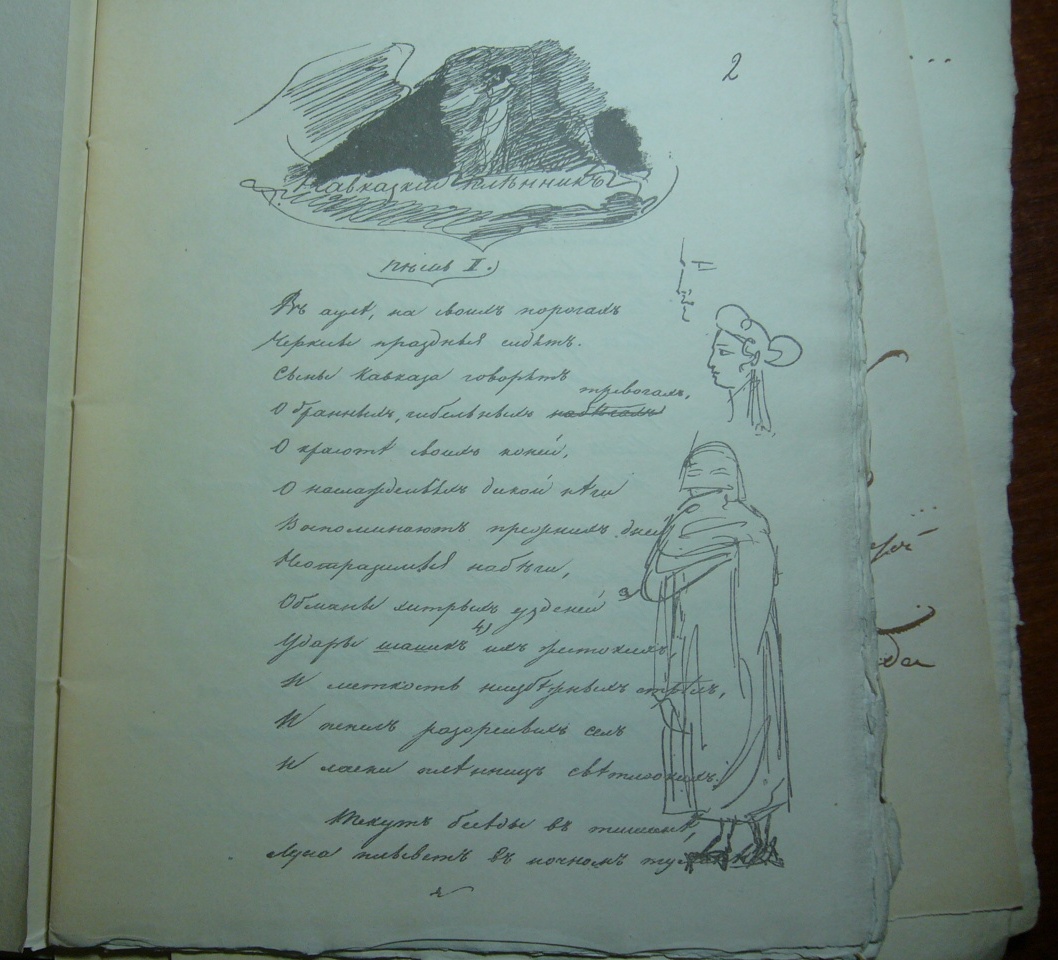 2
Кавказкій плѣнникъ
пѣснь I.
Въ аулѣ, на своихъ порогахъ
Черкесы праздные сидятъ.
Сыны Кавказа говорятъ
тревогахъ,
О бранныхъ, гибельныхъ набѣгахъ
О красотѣ своихъ коней,
О наслажденьяхъ дикой нѣги
Воспоминаютъ прежнихъ дней
Неотразимые набѣги,
Обманы хитрыхъ узденей
4)
Удары шашекъ ихъ жестокихъ,
И меткость неизбѣжныхъ стрѣлъ,
И пепелъ разоренныхъ селъ
И ласки плѣнницъ
Текутъ бесѣды въ тишинѣ,
Луна плыветъ въ ночномъ туманѣ